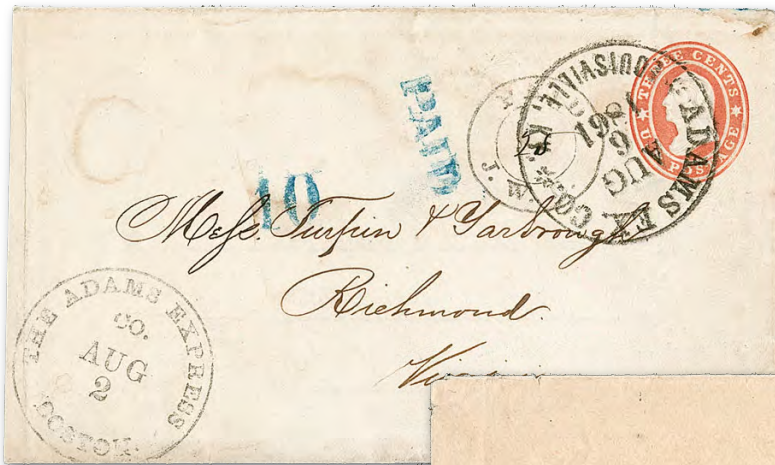 THREE CENTS
U.S. POSTAGE
ADAMS EX. CO.
LOUISVILLE, KY.
AUG
1861
PAID
J. W.
10
Mess. Turpin & Yarbrough
Richmond
THE ADAMS EXPRESS
CO.
AUG
2
BOSTON